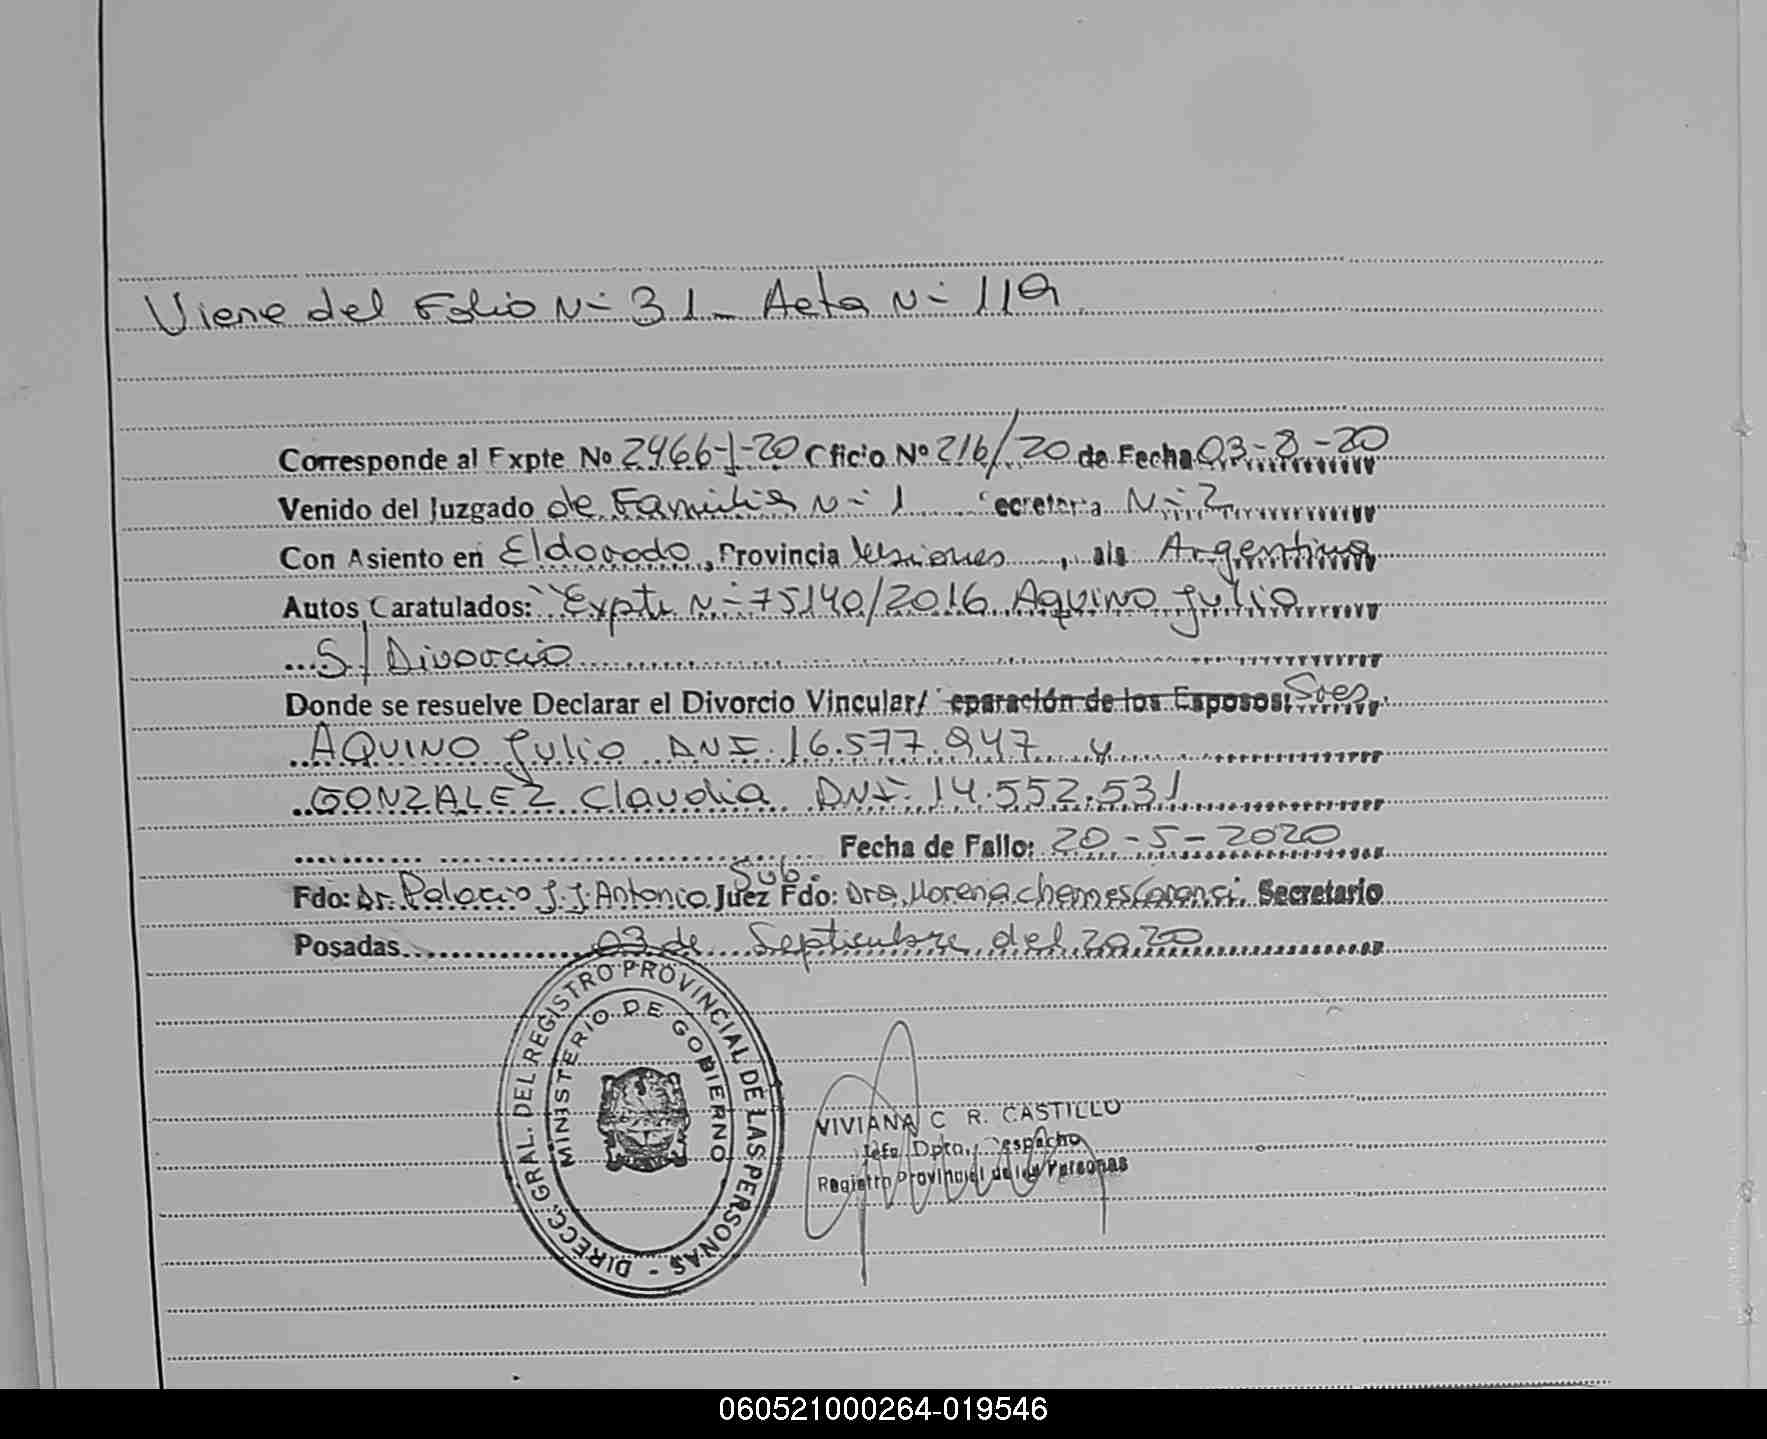 Viene del Folio N- 31- Acta N- 119
Corresponde al Expte No 2466-J-20 Oficio Nº 216/20 de Fecha 03-8-20
Venido del Juzgado de Familia N- 1 Secretaria N- 2
Con Asiento en Eldorado, Provincia Misiones, Argentina
Autos Caratulados: "Expte N- 75140/2016 Aquino Julio
S/ Divorcio
Donde se resuelve Declarar el Divorcio Vincular/ eparación de los Esposos: Sres.
AQUINO Julio DNI. 16.577.947 y
GONZALEZ Claudia DNI. 14.552.531
Fecha de Fallo: 20-5-2020
Sub.
Fdo: Dr. Palacio J.J. Antonio Juez Fdo: Dra. Morena Chemes Secretario
Posadas 03 de Septiembre del 2020
DIRECC. GRAL. DEL REGISTRO PROVINCIAL DE LAS PERSONAS -
MINISTERIO DE GOBIERNO
VIVIANA C R. CASTILLO
Jefa Dpto. espacho
Registro Provincial de las Personas
060521000264-019546